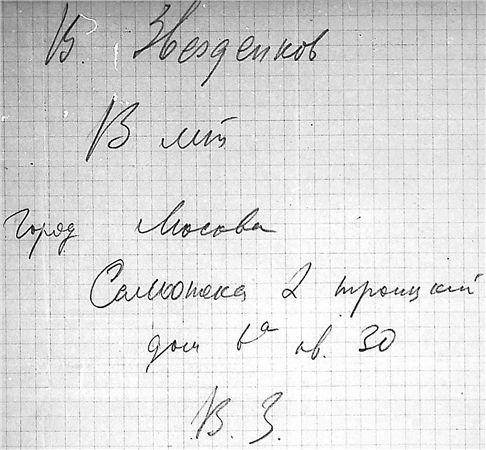 В. Звезденков
В лет
Город Москова
Самотека 2 троицкий
дом 6а кв. 30
В. З.